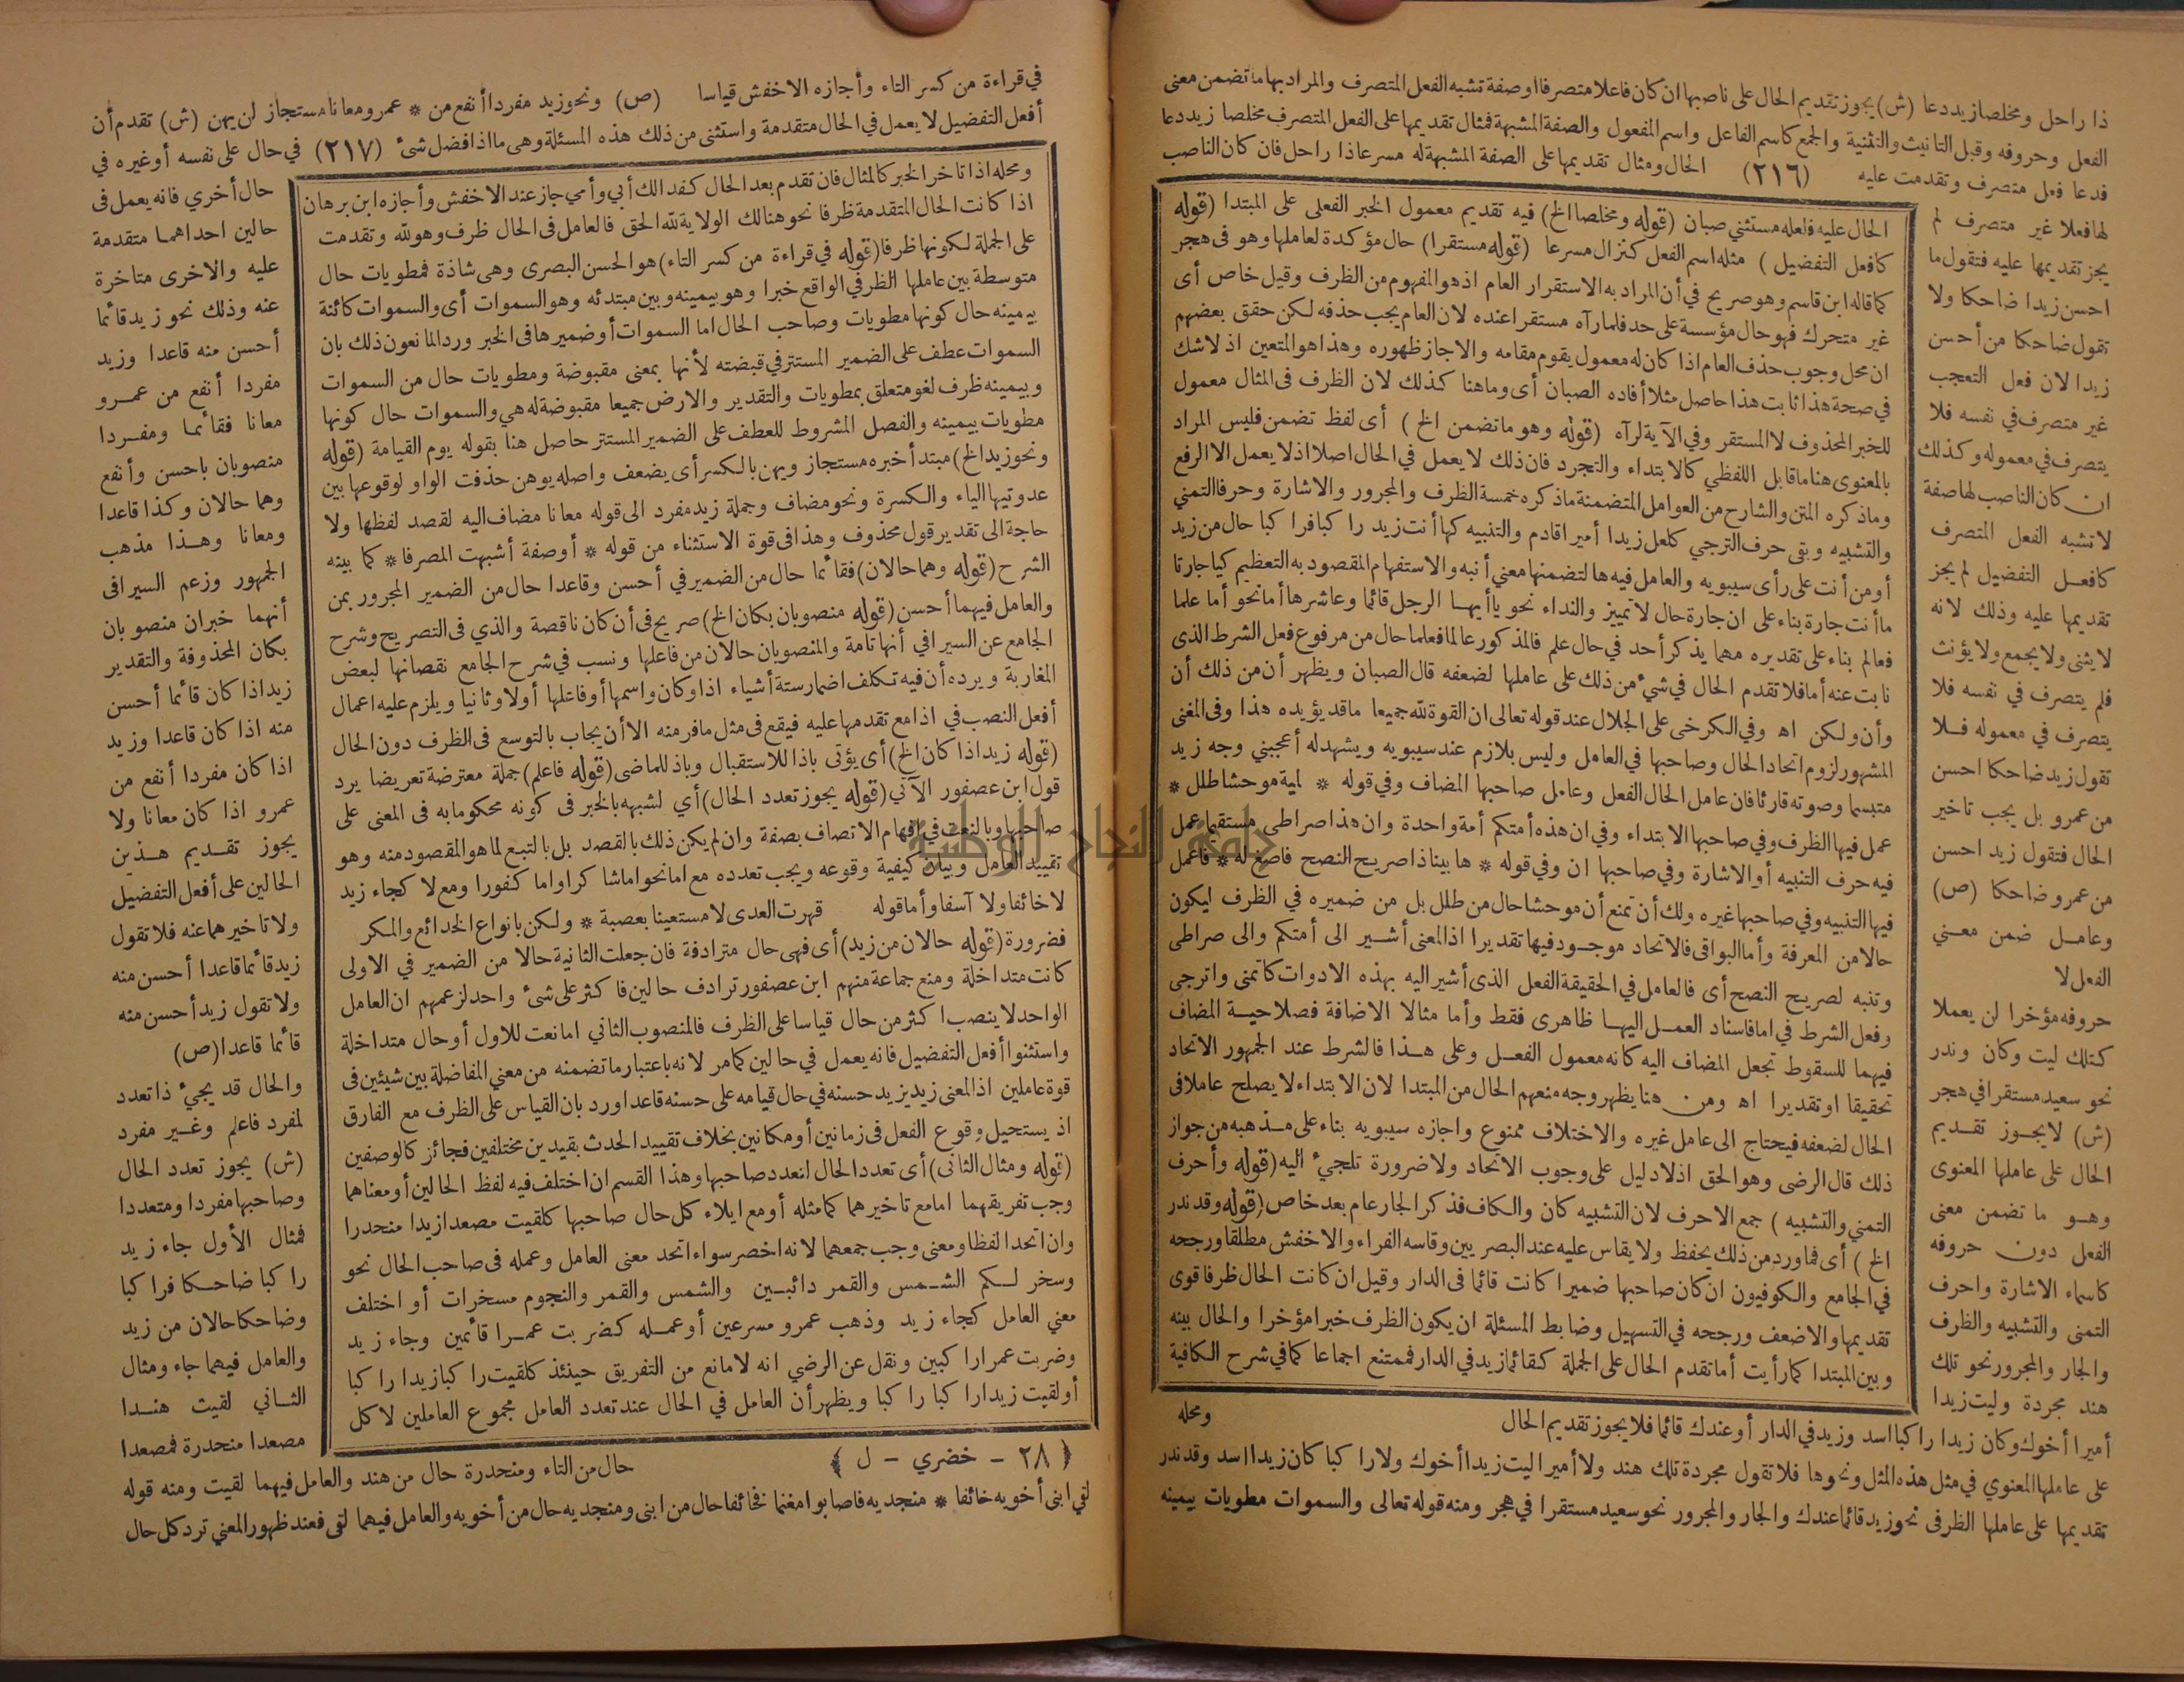 ذا راحل ومخلصا زيد دعا (ش) يجوز تقديم الحال على ناصبها ان كان فاعلا متصرفا اوصفة تشبه الفعل المتصرف والمراد بها ما تضمن معنى
الفعل وحروفه وقبل التانيث والتثنية والجمع كاسم الفاعل واسم المفعول والصفة المشبهة فمثال تقديمها على الفعل المتصرف مخلصا زيد دعا
فدعا فعل متصرف وتقدمت عليه (٢١٦) الحال ومثال تقديمها على الصفة المشبهة له مسرعا ذا راحل فان كان الناصب
لها فعلا غير متصرف لم
يجز تقديمها عليه فتقول ما
احسن زيدا ضاحكا ولا
تقول ضاحكا من أحسن
زيدا لان فعل التعجب
غير متصرف في نفسه فلا
يتصرف في معموله وكذلك
ان كان الناصب لها صفة
لا تشبه الفعل المتصرف
كافعل التفضيل لم يجز
تقديمها عليه وذلك لانه
لا يثنى ولا يجمع ولا يؤنث
فلم يتصرف في نفسه فلا
يتصرف في معموله فلا
تقول زيد ضاحكا احسن
من عمرو بل يجب تاخير
الحال فتقول زيد احسن
من عمرو ضاحكا (ص)
وعامل ضمن معنى
الفعل لا
حروفه مؤخرا لن يعملا
كتلك ليت وكان وندر
نحو سعيد مستقرا في هجر
(ش) لا يجوز تقديم
الحال على عاملها المعنوى
وهو ما تضمن معنى
الفعل دون حروفه
كاسماء الاشارة واحرف
التمنى والتشبيه والظرف
والجار والمجرور نحو تلك
هند مجردة وليت زيدا
الحال عليه فلعله مستثنى صبان (قوله ومخلصا الخ) فيه تقديم معمول الخبر الفعلى على المبتدا (قوله
كافعل التفضيل) مثله اسم الفعل كنزال مسرعا (قوله مستقرا) حال مؤكدة لعاملها وهو فى هجر
كما قاله ابن قاسم وهو صريح في أن المراد به الاستقرار العام اذ هو المفهوم من الظرف وقيل خاص أى
غير متحرك فهو حال مؤسسة على حد فلما رآه مستقرا عنده لان العام يجب حذفه لكن حقق بعضهم
ان محل وجوب حذف العام اذا كان له معمول يقوم مقامه والا جاز ظهوره وهذا هو المتعين اذ لاشك
في صحة هذا ثابت هذا حاصل مثلا أفاده الصبان أى وما هنا كذلك لان الظرف فى المثال معمول
للخبر المحذوف لا المستقر وفي الآية لرآه (قوله وهو ما تضمن الخ) أى لفظ تضمن فليس المراد
بالمعنوى هنا ما قابل اللفظي كالابتداء والتجرد فان ذلك لا يعمل في الحال اصلا اذ لا يعمل الا الرفع
وما ذكره المتن والشارح من العوامل المتضمنة ما ذكره خمسة الظرف والمجرور والاشارة وحرفا التمني
والتشبيه وبقى حرف الترجي كلعل زيدا أميرا قادم والتنبيه كها أنت زيد راكبا فراكبا حال من زيد
أو من أنت على رأى سيبويه والعامل فيه ها لتضمنها معني أنبه والاستفهام المقصود به التعظيم كيا جارتا
ما أنت جارة بناء على ان جارة حال لا تمييز والنداء نحو يا أيها الرجل قائما وعاشرها أما نحو أما علما
فعالم بناء على تقديره مهما يذكر أحد في حال علم فالمذكور عالما فعلما حال من مرفوع فعل الشرط الذى
نابت عنه أما فلا تقدم الحال في شيء من ذلك على عاملها لضعفه قال الصبان ويظهر أن من ذلك أن
وأن ولكن اه وفي الكرخى على الجلال عند قوله تعالى ان القوة لله جميعا ما قد يؤيده هذا وفى المغنى
المشهور لزوم اتحاد الحال وصاحبها في العامل وليس بلازم عند سيبويه ويشهد له أعجبني وجه زيد
متبسما وصوته قارئا فان عامل الحال الفعل وعامل صاحبها المضاف وفي قوله * لمية موحشا طلل *
عمل فيها الظرف وفي صاحبها الابتداء وفي ان هذه أمتكم أمة واحدة وان هذا صراطى مستقيما عمل
فيه حرف التنبيه أو الاشارة وفي صاحبها ان وفي قوله * ها بينا ذا صريح النصح فاصغ له * فاعمل
فيها التنبيه وفي صاحبها غيره ولك أن تمنع أن موحشا حال من طلل بل من ضميره في الظرف ليكون
حالا من المعرفة وأما البواقى فالاتحاد موجود فيها تقديرا اذ المعنى أشير الى أمتكم والى صراطى
وتنبه لصريح النصح أى فالعامل في الحقيقة الفعل الذى أشير اليه بهذه الادوات كاتمنى واترجى
وفعل الشرط في اما فاسناد العمل اليها ظاهرى فقط وأما مثالا الاضافة فصلاحية المضاف
فيهما للسقوط تجعل المضاف اليه كانه معمول الفعل وعلى هذا فالشرط عند الجمهور الاتحاد
تحقيقا او تقديرا اه ومن هنا يظهر وجه منعهم الحال من المبتدا لان الابتداء لا يصلح عاملا فى
الحال لضعفه فيحتاج الى عامل غيره والاختلاف ممنوع واجازه سيبويه بناء على مذهبه من جواز
ذلك قال الرضى وهو الحق اذ لا دليل على وجوب الاتحاد ولا ضرورة تلجئ اليه (قوله وأحرف
التمنى والتشبيه) جمع الاحرف لان التشبيه كان والكاف فذكر الجار عام بعد خاص (قوله وقد ندر
الخ) أى فما ورد من ذلك يحفظ ولا يقاس عليه عند البصريين وقاسه الفراء والاخفش مطلقا ورجحه
في الجامع والكوفيون ان كان صاحبها ضميرا كانت قائما فى الدار وقيل ان كانت الحال ظرفا قوى
تقديمها والا ضعف ورجحه في التسهيل وضابط المسئلة ان يكون الظرف خبرا مؤخرا والحال بينه
وبين المبتدا كما رأيت أما تقدم الحال على الجملة كقائما زيد في الدار فممتنع اجماعا كما في شرح الكافية
ومحله
أميرا أخوك وكان زيدا راكبا اسد وزيد في الدار أو عندك قائما فلا يجوز تقديم الحال
على عاملها المعنوي في مثل هذه المثل ونحوها فلا تقول مجردة تلك هند ولا أميرا ليت زيدا أخوك ولا راكبا كان زيدا اسد وقد ندر
تقديمها على عاملها الظرفى نحو زيد قائما عندك والجار والمجرور نحو سعيد مستقرا في هجر ومنه قوله تعالى والسموات مطويات بيمينه
في قراءة من كسر التاء وأجازه الاخفش قياسا (ص) ونحو زيد مفردا أنفع من * عمرو معانا مستجاز لن يهن (ش) تقدم أن
أفعل التفضيل لا يعمل في الحال متقدمة واستثنى من ذلك هذه المسئلة وهى ما اذا فضل شئ (٢١٧) في حال على نفسه أو غيره في
حال أخري فانه يعمل فى
حالين احداهما متقدمة
عليه والاخرى متاخرة
عنه وذلك نحو زيد قائما
أحسن منه قاعدا وزيد
مفردا أنفع من عمرو
معانا فقائما ومفردا
منصوبان باحسن وأنفع
وهما حالان وكذا قاعدا
ومعانا وهذا مذهب
الجمهور وزعم السيرافى
أنهما خبران منصوبان
بكان المحذوفة والتقدير
زيد اذا كان قائما أحسن
منه اذا كان قاعدا وزيد
اذا كان مفردا أنفع من
عمرو اذا كان معانا ولا
يجوز تقديم هذين
الحالين على أفعل التفضيل
ولا تاخيرهما عنه فلا تقول
زيد قائما قاعدا أحسن منه
ولا تقول زيد أحسن منه
قائما قاعدا (ص)
والحال قد يجئ ذا تعدد
لمفرد فاعلم وغير مفرد
(ش) يجوز تعدد الحال
وصاحبها مفردا ومتعددا
فمثال الأول جاء زيد
راكبا ضاحكا فراكبا
وضاحكا حالان من زيد
والعامل فيهما جاء ومثال
الثانى لقيت هندا
مصعدا منحدرة فمصعدا
ومحله اذا تاخر الخبر كالمثال فان تقدم بعد الحال كفدا لك أبي وأمي جاز عند الاخفش وأجازه ابن برهان
اذا كانت الحال المتقدمة ظرفا نحو هنالك الولاية لله الحق فالعامل فى الحال ظرف وهو لله وتقدمت
على الجملة لكونها ظرفا (قوله في قراءة من كسر التاء) هو الحسن البصرى وهى شاذة فمطويات حال
متوسطة بين عاملها الظرفي الواقع خبرا وهو بيمينه وبين مبتدئه وهو السموات أى والسموات كائنة
بيمينه حال كونها مطويات وصاحب الحال اما السموات أو ضميرها فى الخبر ورد المانعون ذلك بان
السموات عطف على الضمير المستتر في قبضته لأنها بمعنى مقبوضة ومطويات حال من السموات
وبيمينه ظرف لغو متعلق بمطويات والتقدير والارض جميعا مقبوضة له هي والسموات حال كونها
مطويات بيمينه والفصل المشروط للعطف على الضمير المستتر حاصل هنا بقوله يوم القيامة (قوله
ونحو زيد الخ) مبتدأ خبره مستجاز ويهن بالكسر أى يضعف واصله يوهن حذفت الواو لوقوعها بين
عدوتيها الياء والكسرة ونحو مضاف وجملة زيد مفرد الى قوله معانا مضاف اليه لقصد لفظها ولا
حاجة الى تقدير قول محذوف وهذا فى قوة الاستثناء من قوله * أوصفة أشبهت المصرفا * كما بينه
الشرح (قوله وهما حالان) فقائما حال من الضمير في أحسن وقاعدا حال من الضمير المجرور بمن
والعامل فيهما أحسن (قوله منصوبان بكان الخ) صريح فى أن كان ناقصة والذي فى التصريح وشرح
الجامع عن السيرافي أنها تامة والمنصوبان حالان من فاعلها ونسب في شرح الجامع نقصانها لبعض
المغاربة ويرده أن فيه تكلف اضمار ستة أشياء اذا وكان واسمها أو فاعلها أولا وثانيا ويلزم عليه اعمال
أفعل النصب في اذا مع تقدمها عليه فيقع فى مثل ما فر منه الا أن يجاب بالتوسع فى الظرف دون الحال
(قوله زيد اذا كان الخ) أى يؤتى باذا للاستقبال وباذ للماضى (قوله فاعلم) جملة معترضة تعريضا يرد
قول ابن عصفور الآتي (قوله يجوز تعدد الحال) أي لشبهه بالخبر فى كونه محكوما به فى المعنى على
صاحبها وبالنعت في افهام الاتصاف بصفة وان لم يكن ذلك بالقصد بل بالتبع لما هو المقصود منه وهو
تقييد العامل وبيان كيفية وقوعه ويجب تعدده مع اما نحو اما شاكرا واما كفورا ومع لا كجاء زيد
لا خائفا ولا آسفا وأما قوله قهرت العدى لا مستعينا بعصبة * ولكن بانواع الخدائع والمكر
فضرورة (قوله حالان من زيد) أى فهى حال مترادفة فان جعلت الثانية حالا من الضمير في الاولى
كانت متداخلة ومنع جماعة منهم ابن عصفور ترادف حالين فاكثر على شئ واحد لزعمهم ان العامل
الواحد لا ينصب اكثر من حال قياسا على الظرف فالمنصوب الثاني اما نعت للاول أو حال متداخلة
واستثنوا أفعل التفضيل فانه يعمل في حالين كما مر لانه باعتبار ما تضمنه من معني المفاضلة بين شيئين فى
قوة عاملين اذ المعنى زيد يزيد حسنه في حال قيامه على حسنه قاعدا ورد بان القياس على الظرف مع الفارق
اذ يستحيل وقوع الفعل فى زمانين أو مكانين بخلاف تقييد الحدث بقيدين مختلفين فجائز كالوصفين
(قوله ومثال الثانى) أى تعدد الحال لتعدد صاحبها وهذا القسم ان اختلف فيه لفظ الحالين أو معناهما
وجب تفريقهما اما مع تاخيرهما كما مثله أو مع ايلاء كل حال صاحبها كلقيت مصعدا زيدا منحدرا
وان اتحد الفظا ومعنى وجب جمعهما لانه اخصر سواء اتحد معنى العامل وعمله فى صاحب الحال نحو
وسخر لكم الشمس والقمر دائبين والشمس والقمر والنجوم مسخرات أو اختلف
معني العامل كجاء زيد وذهب عمرو مسرعين أو عمله كضربت عمرا قائمين وجاء زيد
وضربت عمرا راكبين ونقل عن الرضي انه لا مانع من التفريق حينئذ كلقيت راكبا زيدا راكبا
أو لقيت زيدا راكبا راكبا ويظهر أن العامل في الحال عند تعدد العامل مجموع العاملين لا كل
(٢٨ - خضري - ل)
حال من التاء ومنحدرة حال من هند والعامل فيهما لقيت ومنه قوله
لقي ابنى أخويه خائفا * منجديه فاصابوا مغنما فخائفا حال من ابنى ومنجديه حال من أخويه والعامل فيهما لقى فعند ظهور المعني ترد كل حال
جامعة النجاح الوطنية